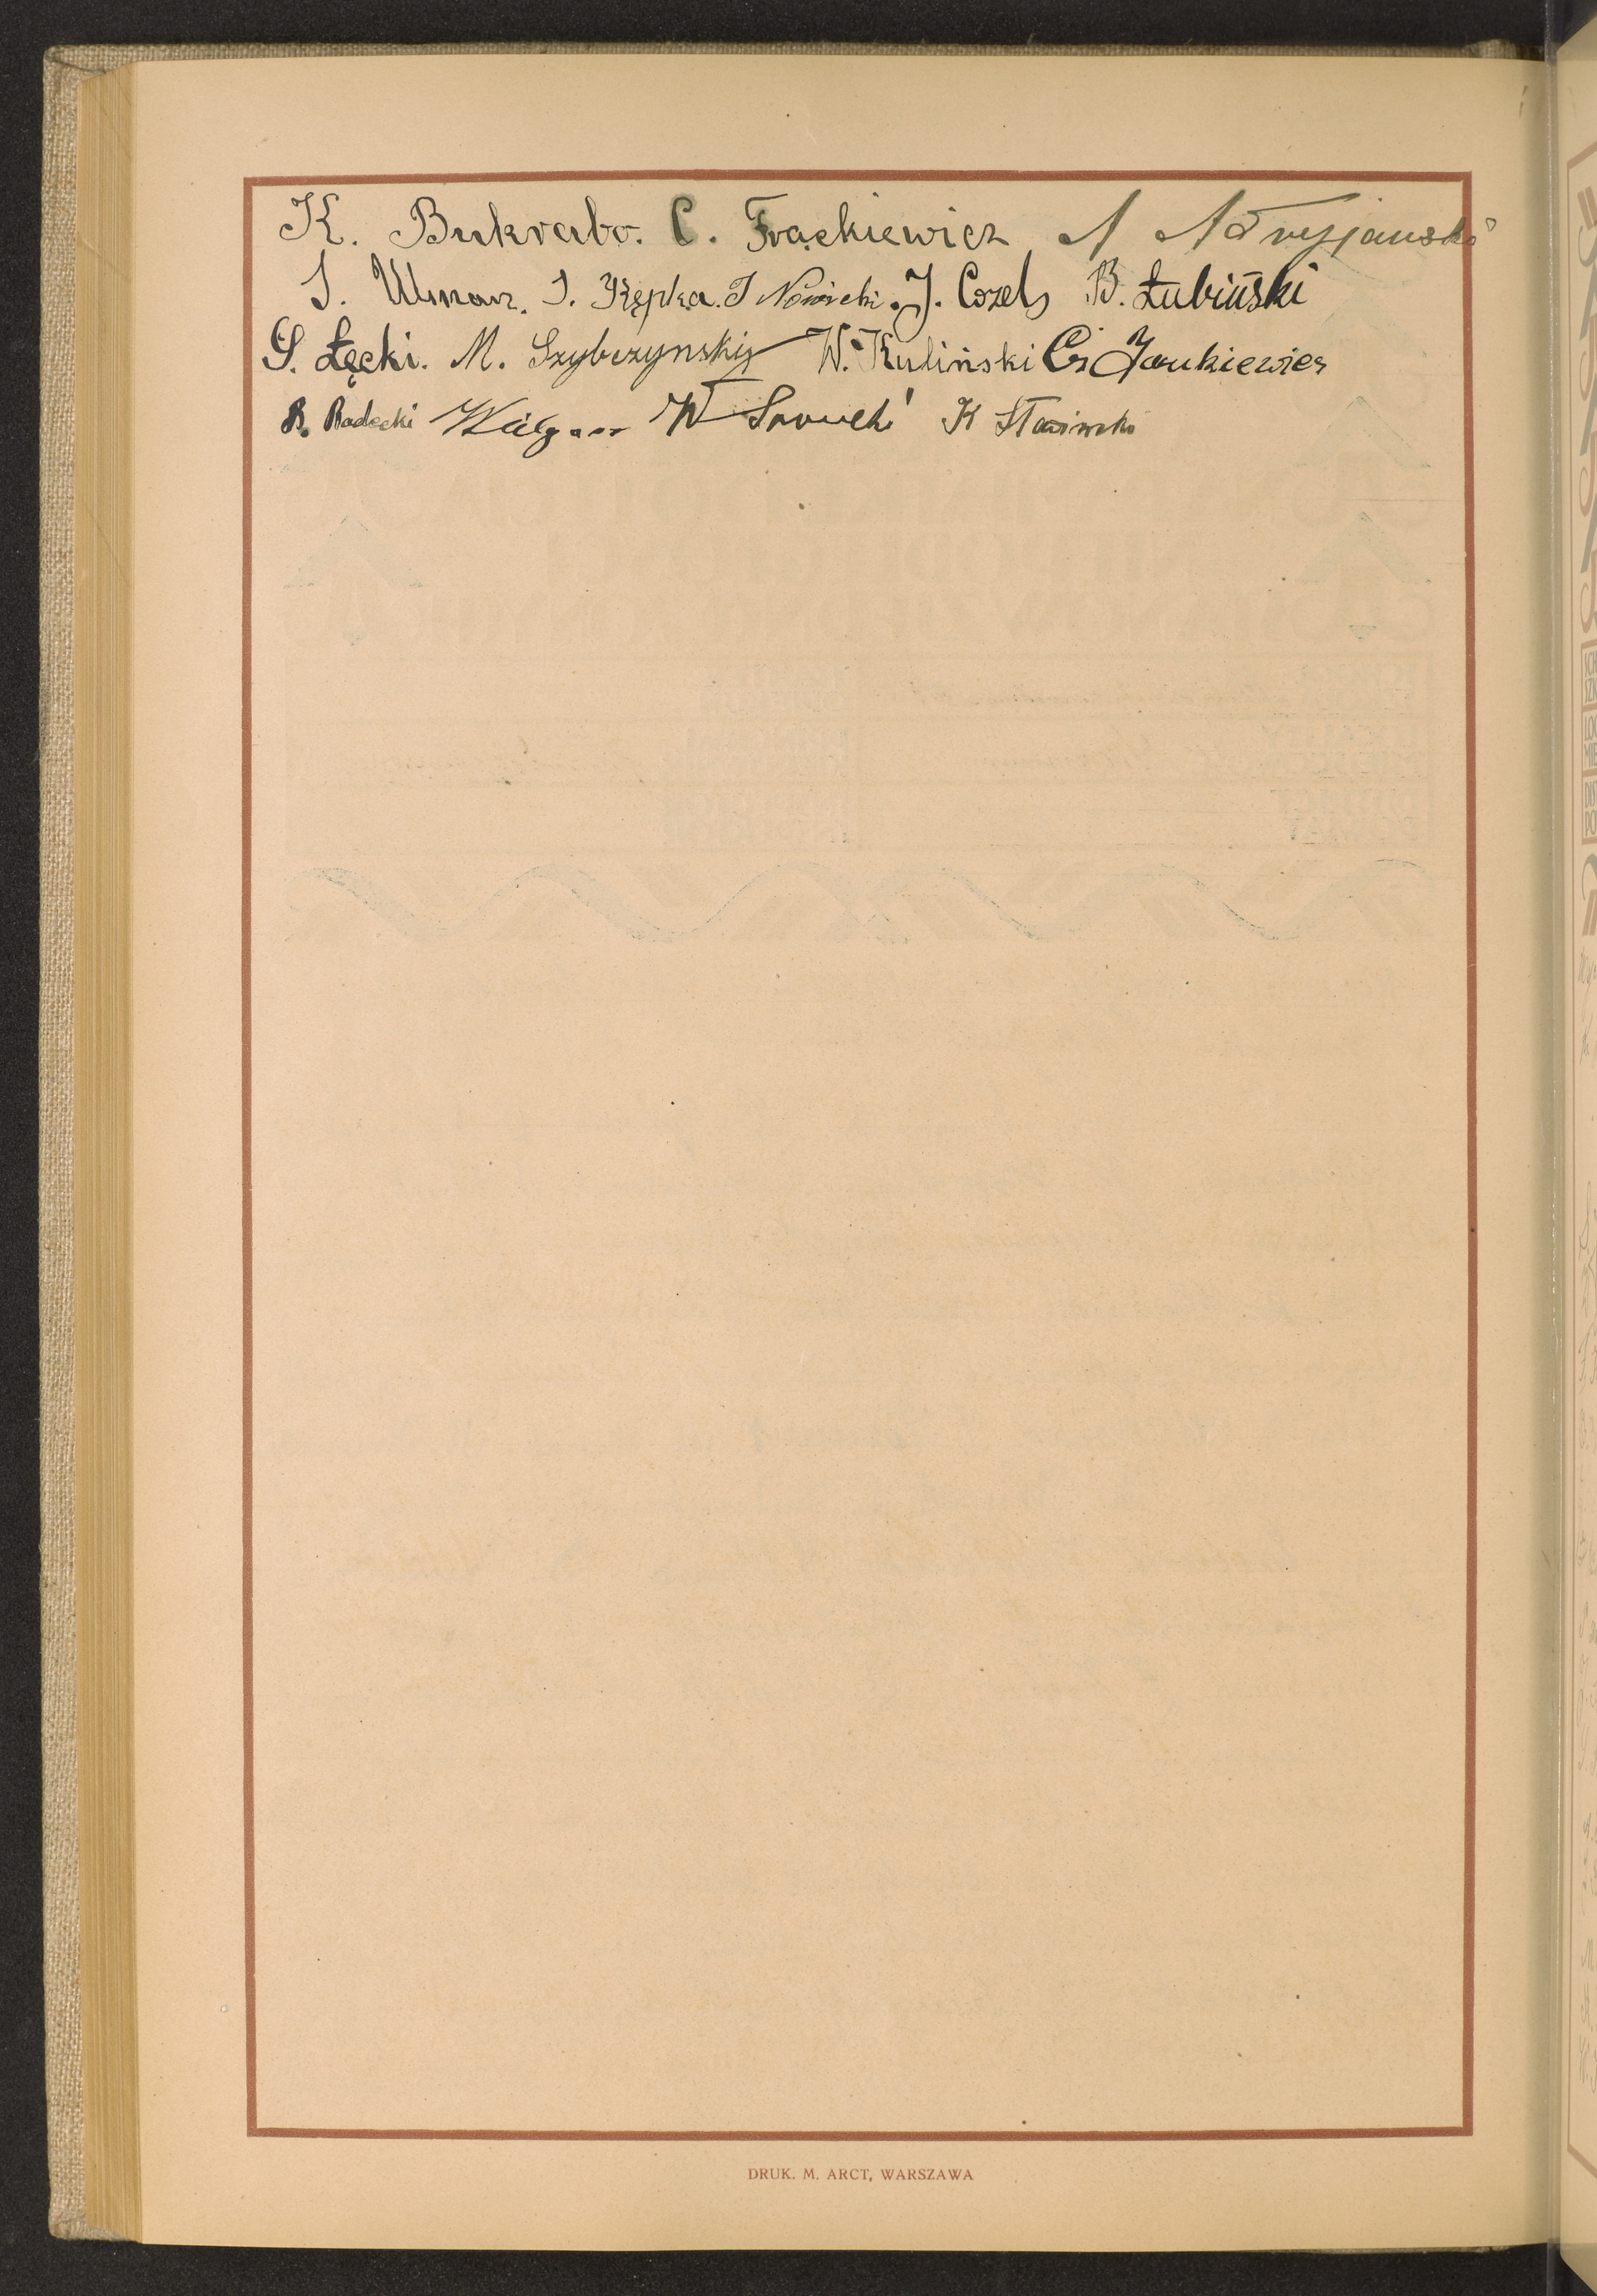 K. Bukrabo. C. Frąckiewicz A Adryjański
J. Ulman. J. Rępka. J Nowicki. J. Cozel B. Łubiński
S. Łęcki. M. Szybczynski W. Kuliński Cz Jankiewicz
B. Radecki W K
DRUK. M. ARCT, WARSZAWA